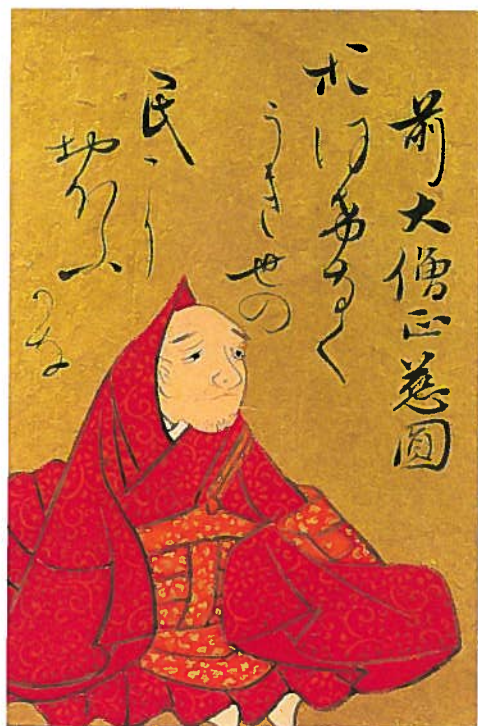 前大僧正慈圓
おほけなく
うき世の
民に
おほふ
かな